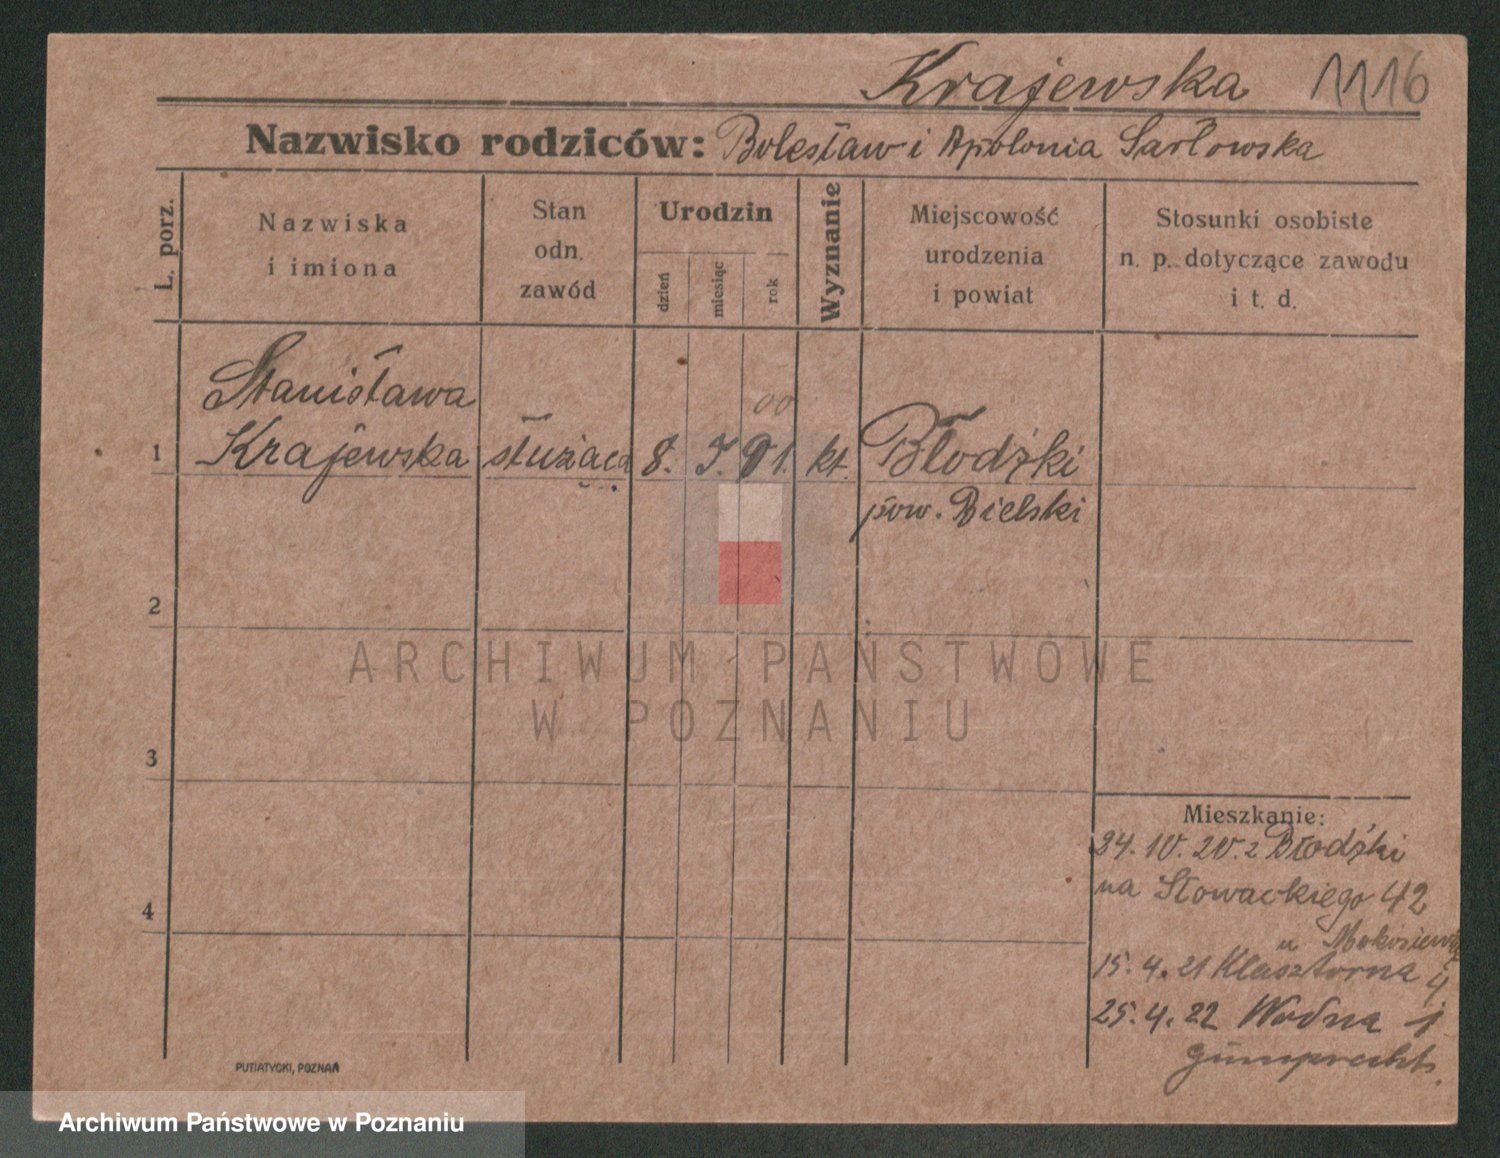 Krajewska 1116
Nazwisko rodziców: Bolesław i Apolonia Sarłowska
L. porz.
Nazwiska
i imiona
Stan
odn.
zawód
Urodzin
dzień
miesiąc
rok
Wyznanie
Miejscowość
urodzenia
i powiat
Stosunki osobiste
n. p. dotyczące zawodu
i t. d.
Stanisława
00
1 Krajewska służąca 8. I. 01. kt. Błodźki
pow. Bielski
2
ARCHIWUM PAŃSTWOWE
W POZNANIU
3
Mieszkanie:
24. IV. 20. z Błodźki
na Słowackiego 42
4
u
15. 4. 21 Klasztorna 4
25. 4. 22 Wodna 1
Gumprecht.
PUTIATYCKI, POZNAŃ
Archiwum Państwowe w Poznaniu